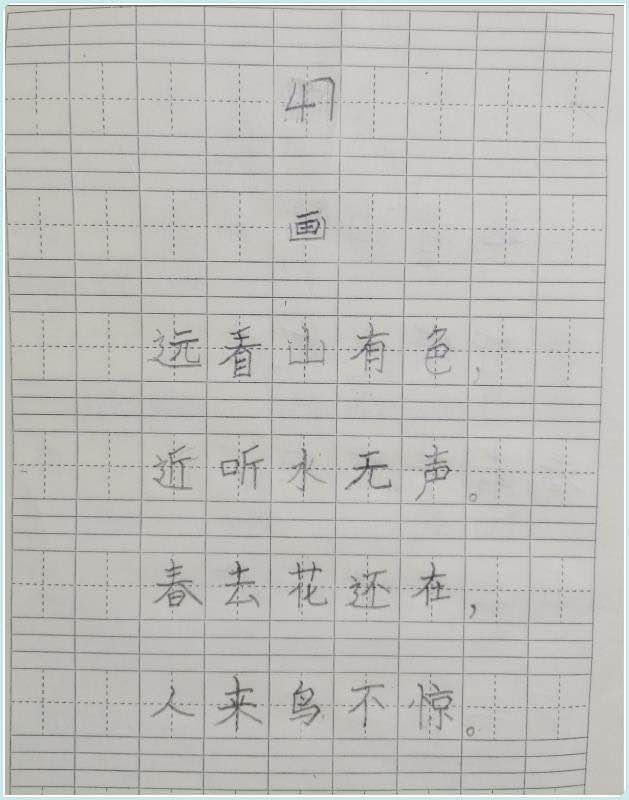 47
画
远看山有色，
近听水无声。
春去花还在，
人来鸟不惊。